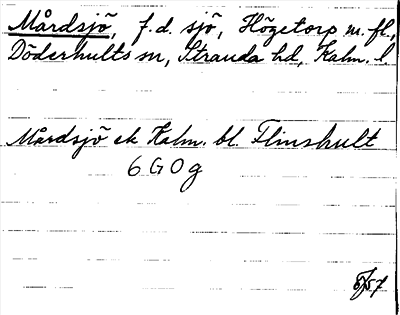 Mårdsjö, f.d. sjö, Högetorp m.fl.,
Döderhults sn, Stranda hd, Kalm. l.
Mårdsjö ek Kalm. bl. Flinshult
6 G 0 g